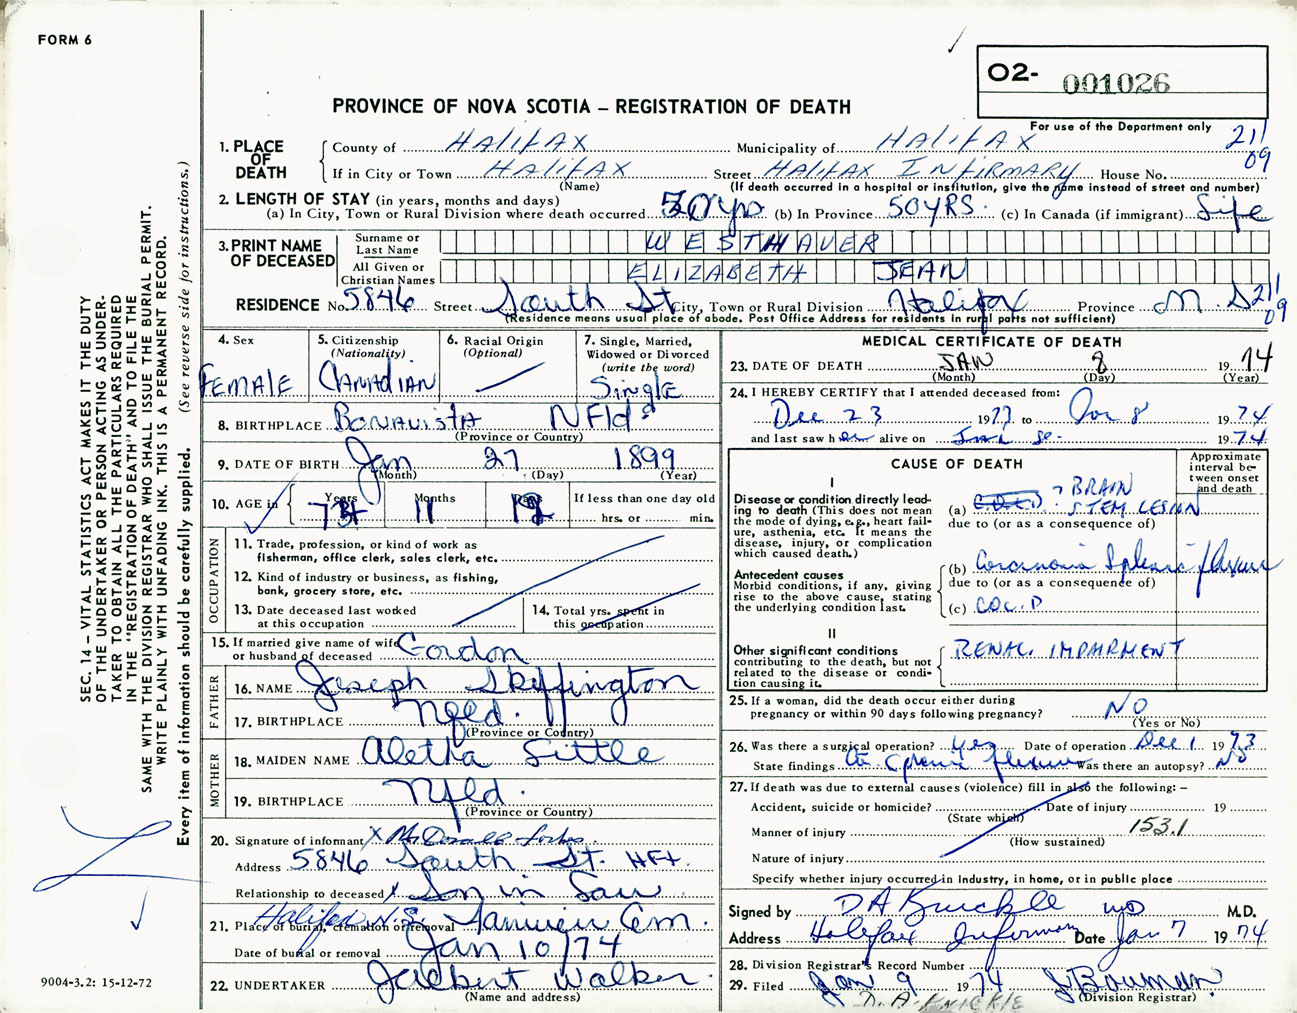 FORM 6
O2- 001026
PROVINCE OF NOVA SCOTIA – REGISTRATION OF DEATH
For use of the Department only
21/09
1. PLACE OF DEATH
County of HALIFAX Municipality of HALIFAX
If in City or Town HALIFAX Street HALIFAX INFIRMARY House No.
(Name) (If death occurred in a hospital or institution, give the name instead of street and number)
2. LENGTH OF STAY (in years, months and days)
(a) In City, Town or Rural Division where death occurred 50 yrs (b) In Province 50 YRS. (c) In Canada (if immigrant) Life
3. PRINT NAME OF DECEASED
Surname or Last Name WESTHAVER
All Given or Christian Names ELIZABETH JEAN
RESIDENCE No. 5846 Street South St City, Town or Rural Division Halifax Province N.S 21/09
(Residence means usual place of abode. Post Office Address for residents in rural parts not sufficient)
4. Sex
FEMALE
5. Citizenship (Nationality)
CANADIAN
6. Racial Origin (Optional)
7. Single, Married, Widowed or Divorced (write the word)
Single
8. BIRTHPLACE Bonavista NFld
(Province or Country)
9. DATE OF BIRTH Jan 27 1899
(Month) (Day) (Year)
10. AGE in
Years Months Days If less than one day old
11 12 hrs. or min.
OCCUPATION
11. Trade, profession, or kind of work as fisherman, office clerk, sales clerk, etc.
12. Kind of industry or business, as fishing, bank, grocery store, etc.
13. Date deceased last worked at this occupation
14. Total yrs. spent in this occupation
15. If married give name of wife or husband of deceased Gordon
FATHER
16. NAME Joseph Skiffington
17. BIRTHPLACE Nfld.
(Province or Country)
MOTHER
18. MAIDEN NAME Aletha Little
19. BIRTHPLACE Nfld.
(Province or Country)
20. Signature of informant X
Address 5846 South St. Hfx.
Relationship to deceased X Son in Law
21. Place of burial, cremation or removal Halifax N.S. Fairview Cem.
Date of burial or removal Jan 10/74
22. UNDERTAKER Walker
(Name and address)
MEDICAL CERTIFICATE OF DEATH
23. DATE OF DEATH JAN 8 19 74
(Month) (Day) (Year)
24. I HEREBY CERTIFY that I attended deceased from:
Dec 23 1973 to Jan 8 19 74
and last saw her alive on Jan 19 74
CAUSE OF DEATH
Approximate interval between onset and death
I
Disease or condition directly leading to death (This does not mean the mode of dying, e.g., heart failure, asthenia, etc. It means the disease, injury, or complication which caused death.)
(a) ? BRAIN STEM LESION
due to (or as a consequence of)
Antecedent causes
Morbid conditions, if any, giving rise to the above cause, stating the underlying condition last.
(b) Carcinoma Splenic flexure
due to (or as a consequence of)
(c) C.O.L.D
II
Other significant conditions
contributing to the death, but not related to the disease or condition causing it.
RENAL IMPAIRMENT
25. If a woman, did the death occur either during pregnancy or within 90 days following pregnancy? NO
(Yes or No)
26. Was there a surgical operation? Yes Date of operation Dec 1 19 73
State findings Ca splenic flexure Was there an autopsy? NO
27. If death was due to external causes (violence) fill in also the following: –
Accident, suicide or homicide? Date of injury 19
(State which)
Manner of injury 153.1
(How sustained)
Nature of injury
Specify whether injury occurred in industry, in home, or in public place
Signed by D A Knickle MD M.D.
Address Halifax Infirmary Date Jan 7 19 74
28. Division Registrar's Record Number
29. Filed Jan 9 19 74 J Bowman
D. A. KNICKLE (Division Registrar)
SEC. 14 – VITAL STATISTICS ACT MAKES IT THE DUTY
OF THE UNDERTAKER OR PERSON ACTING AS UNDER-
TAKER TO OBTAIN ALL THE PARTICULARS REQUIRED
IN THE "REGISTRATION OF DEATH" AND TO FILE THE
SAME WITH THE DIVISION REGISTRAR WHO SHALL ISSUE THE BURIAL PERMIT.
WRITE PLAINLY WITH UNFADING INK. THIS IS A PERMANENT RECORD.
Every item of information should be carefully supplied. (See reverse side for instructions.)
9004-3.2: 15-12-72